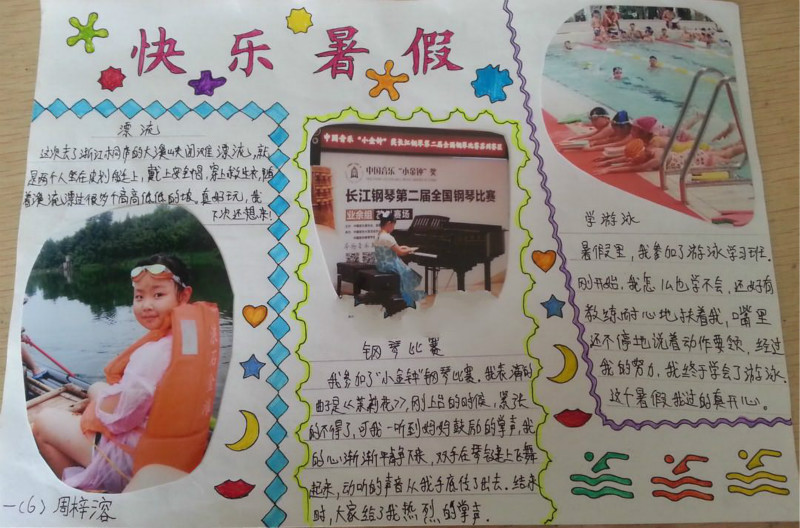 快乐暑假
漂流
这次去了浙江桐庐的大溪峡闯滩漂流，就
是两个人坐在皮划艇上，戴上安全帽，穿上救生衣，随
着漂流漂过很多个高高低低的坡，真好玩，我
下次还想来！
一（6）周梓溶
中国音乐“小金钟”奖长江钢琴第二届全国钢琴比赛
中国音乐“小金钟”奖
长江钢琴第二届全国钢琴比赛
业余组
钢琴比赛
我参加了“小金钟”钢琴比赛，我表演的
曲子是《茉莉花》，刚上台的时候，紧张
的不得了，可我一听到妈妈鼓励的掌声，我
的心渐渐平静下来，双手在琴键上飞舞
起来，动听的声音从我手底传了出去。结束
时，大家给了我热烈的掌声。
学游泳
暑假里，我参加了游泳学习班。
刚开始，我怎么也学不会，还好有
教练耐心地扶着我，嘴里
还不停地说着动作要领，经过
我的努力，我终于学会了游泳。
这个暑假我过的真开心。